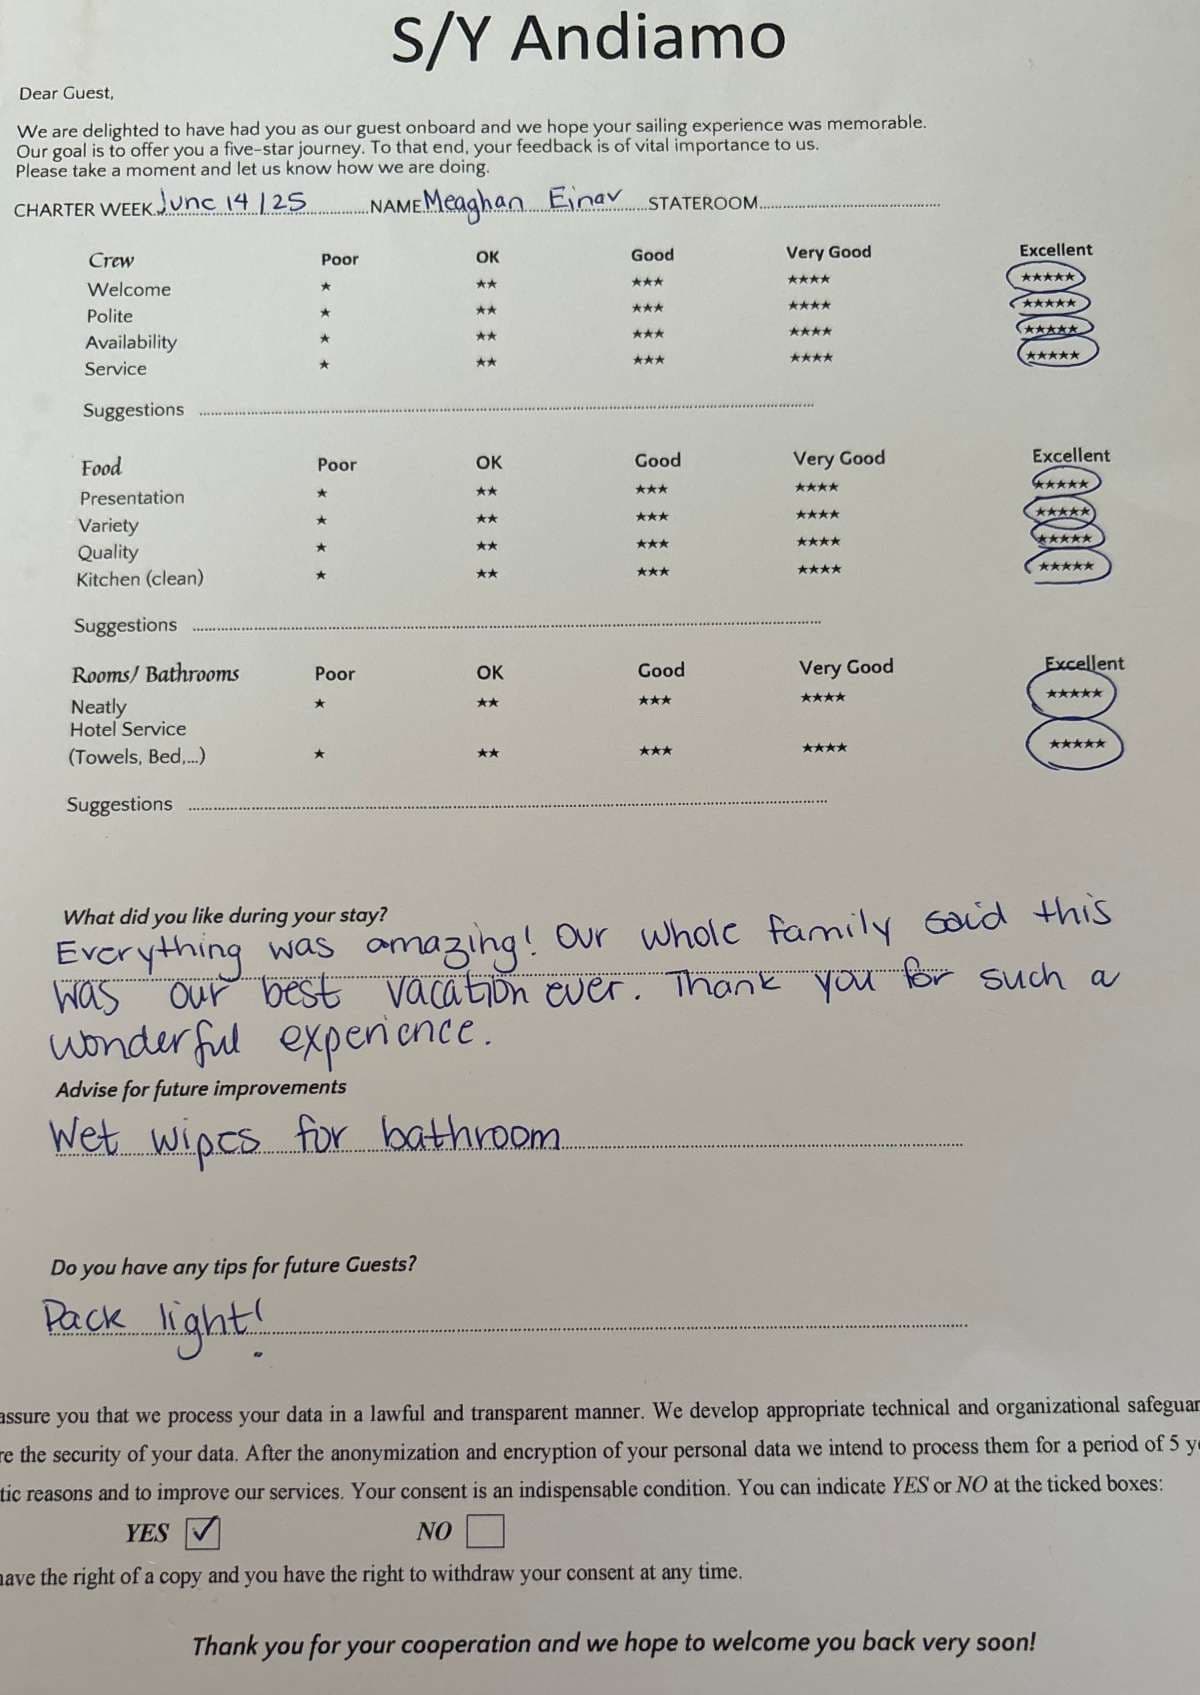 S/Y Andiamo
Dear Guest,
We are delighted to have had you as our guest onboard and we hope your sailing experience was memorable.
Our goal is to offer you a five-star journey. To that end, your feedback is of vital importance to us.
Please take a moment and let us know how we are doing.
CHARTER WEEK June 14 / 25 NAME Meaghan Einav STATEROOM
Crew Poor OK Good Very Good Excellent
Welcome ★ ★★ ★★★ ★★★★ ★★★★★
Polite ★ ★★ ★★★ ★★★★ ★★★★★
Availability ★ ★★ ★★★ ★★★★ ★★★★★
Service ★ ★★ ★★★ ★★★★ ★★★★★
Suggestions
Food Poor OK Good Very Good Excellent
Presentation ★ ★★ ★★★ ★★★★ ★★★★★
Variety ★ ★★ ★★★ ★★★★ ★★★★★
Quality ★ ★★ ★★★ ★★★★ ★★★★★
Kitchen (clean) ★ ★★ ★★★ ★★★★ ★★★★★
Suggestions
Rooms/ Bathrooms Poor OK Good Very Good Excellent
Neatly ★ ★★ ★★★ ★★★★ ★★★★★
Hotel Service
(Towels, Bed,...) ★ ★★ ★★★ ★★★★ ★★★★★
Suggestions
What did you like during your stay?
Everything was amazing! Our whole family said this
was our best vacation ever. Thank you for such a
wonderful experience.
Advise for future improvements
Wet wipes for bathroom
Do you have any tips for future Guests?
Pack light!
assure you that we process your data in a lawful and transparent manner. We develop appropriate technical and organizational safeguar
re the security of your data. After the anonymization and encryption of your personal data we intend to process them for a period of 5 y
tic reasons and to improve our services. Your consent is an indispensable condition. You can indicate YES or NO at the ticked boxes:
YES ✓ NO
have the right of a copy and you have the right to withdraw your consent at any time.
Thank you for your cooperation and we hope to welcome you back very soon!